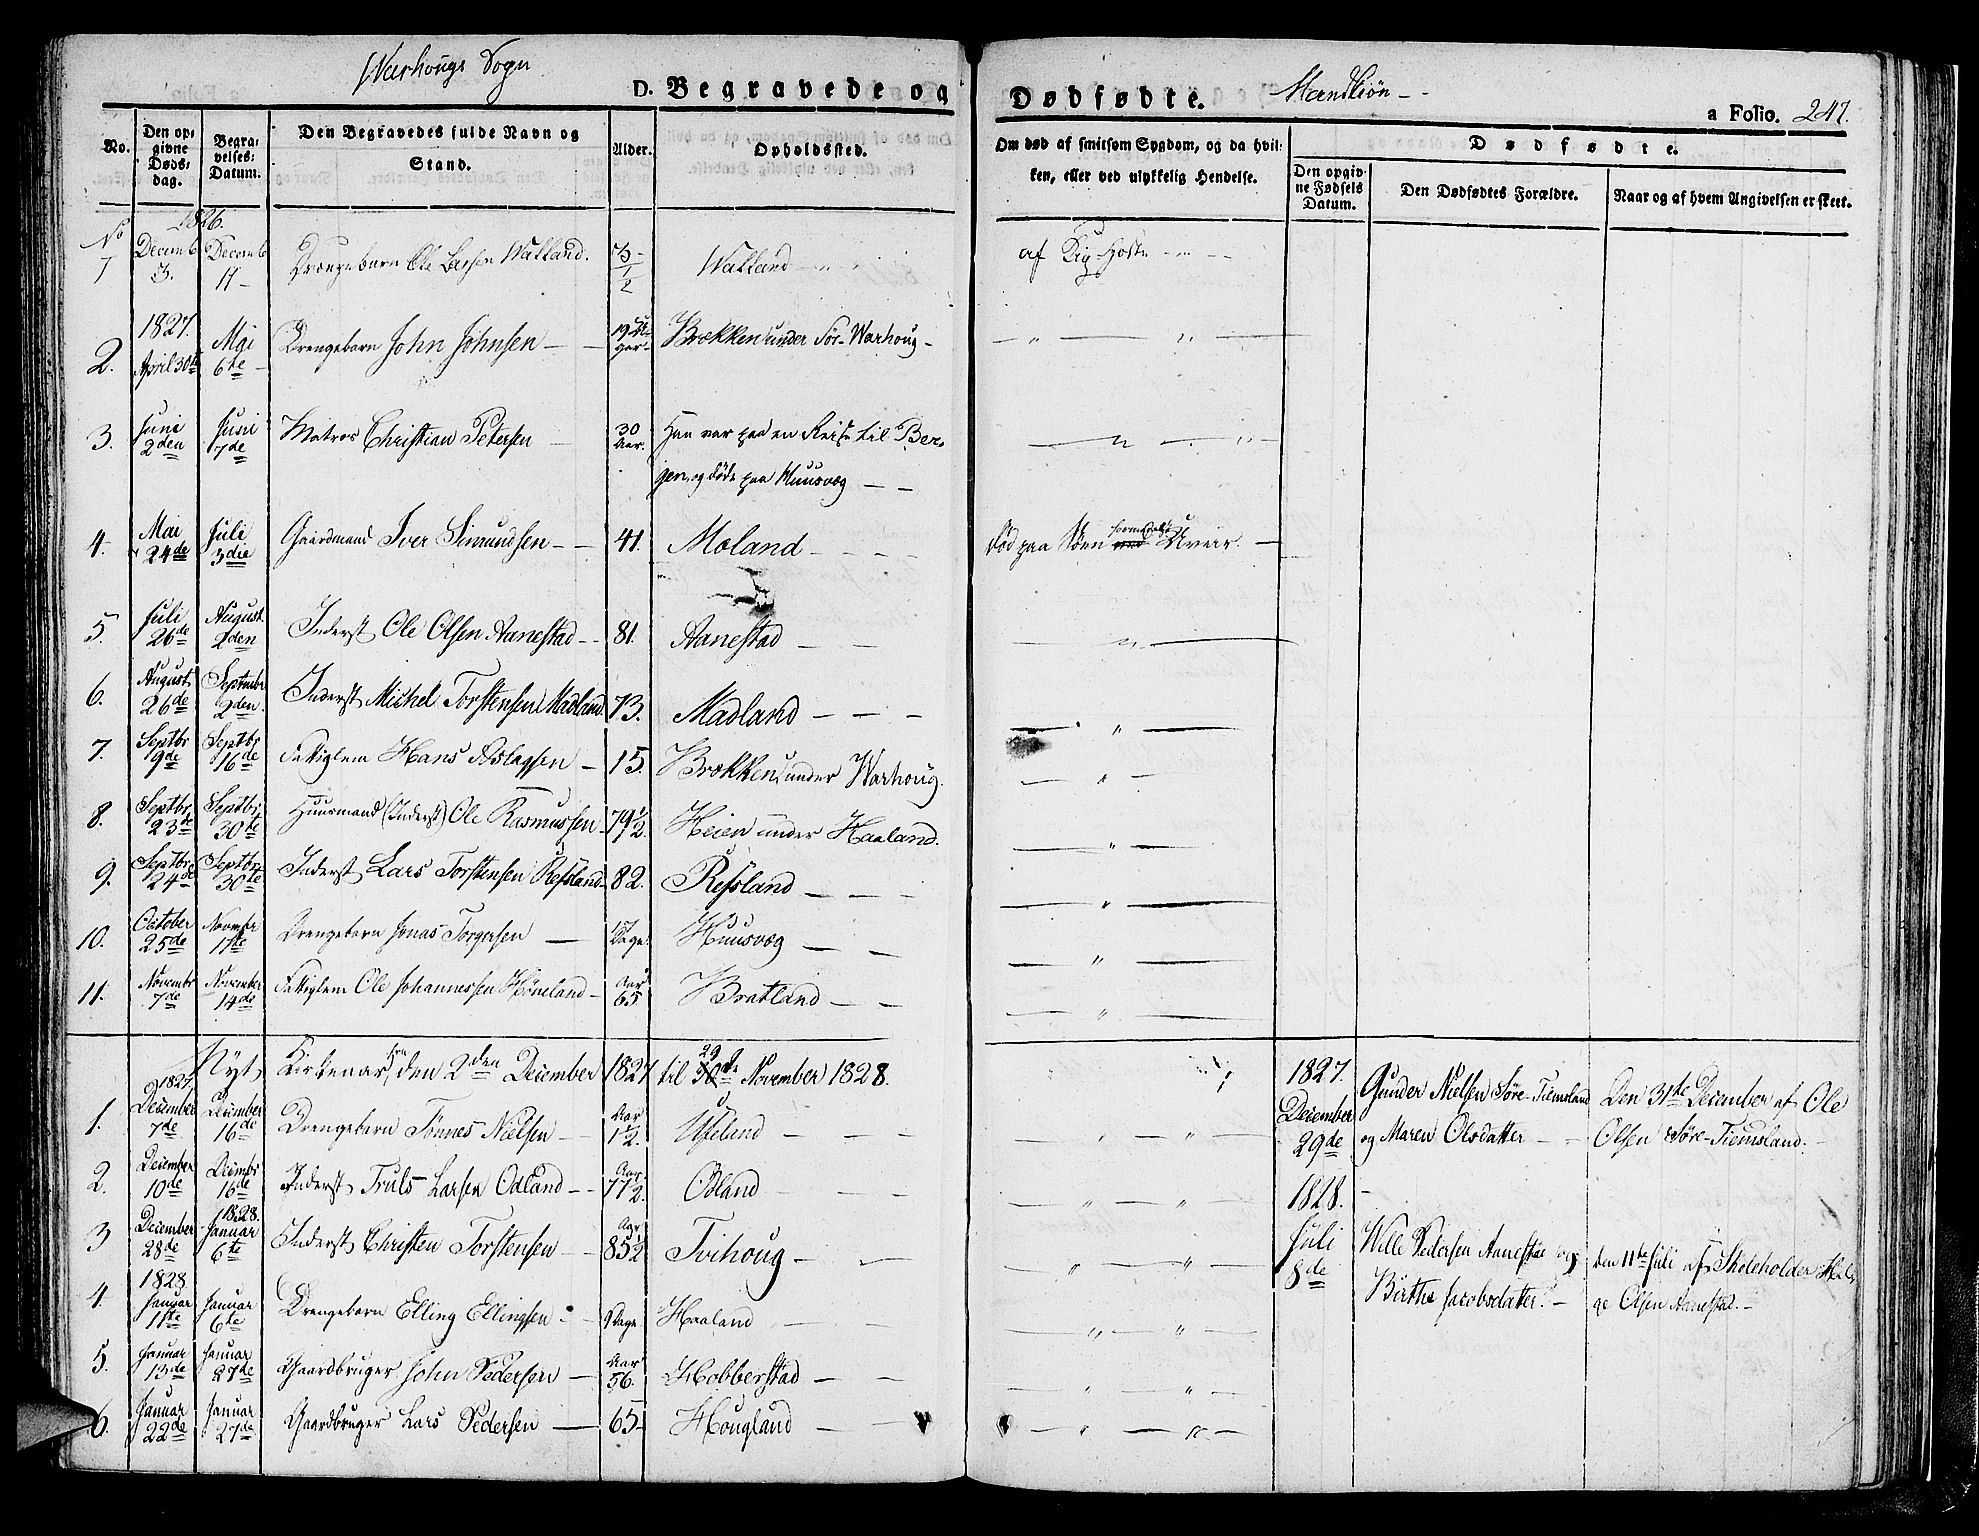 Warhougs Sogn
D. Begravede og Dødfødte. Mandkiøn
a Folio. 247.
No. Den opgivne Dødsdag. Begravelses: Datum. Den Begravedes fulde Navn og Stand. Alder. Opholdssted. Om død af smitsom Sygdom, og da hvilken, eller ved ulykkelig Hendelse. Dødfødte.
Den opgivne Fødsels Datum. Den Dødfødtes Forældre. Naar og af hvem Angivelsen er skeet.
1826.
No 1 Decemb 3. Decemb 11 Drengebarn Ole Larsen Walland. 3 1/2 Walland af Kig-Hoste
2. 1827. April 30te Mai 6te Drengebarn John Johnsen 19 Brekken under Sør-Warhoug
3. Juni 2den Juni 7de Matros Christian Petersen 30 Aar. Han var paa en Reise til Ber-
gen, og døde paa Huusvæg
4. Mai 24de Juli 3die Gaardmand Iver Simundsen 41. Moland Død paa Søen formedelst Uveir.
5. Juli 26de August 2den Inderst Ole Olsen Aanestad 81. Aanestad
6. August 26de Septmbr 2den Inderst Michel Torstensen Madland 73. Madland
7. Septbr 9de Septbr 16de Fattiglem Hans Aslagsen 15. Brekken under Warhoug.
8. Septbr 23de Septbr 30te Huusmand (Inderst) Ole Rasmussen 79 1/2 Heien under Haaland.
9. Septbr 24de Septbr 30te Inderst Lars Torstensen Refsland 82. Refsland
10. October 25de Novembr 11te Drengebarn Jonas Torgersen Dage Huusvæg
11. Novembr 7de November 14de Fattiglem Ole Johannessen Høneland Aar 65 Bratland
Nyt Kirkeaar fra den 2den December 1827 til 29de November 1828.
1. 1827. December 7de December 16de Drengebarn Tønnes Nielsen Aar 1 1/2. Useland
2. December 10de Decembr 16de Inderst Truls Larsen Odland Aar 77 1/2. Odland
3 December 28de 1828. Januar 6te Inderst Christen Torstensen Aar 85 1/2 Tvihoug
4. 1828 Januar 11te Januar 6te Drengebarn Elling Ellingsen 9 Dage Haaland
5. Januar 13de Januar 27de Gaardbruger John Pedersen Aar 56. Hobberstad
6. Januar 22de Januar 27de Gaardbruger Lars Pedersen 65 Hougland
1827. December 29de Gunder Nielsen Søre-Tiemsland og Maren Olsdatter Den 31te December af Ole Olsen Søre-Tiemsland.
1828. Juli 8de Wille Pedersen Aanestad og Birthe Jacobsdatter. den 11te Juli af Skoleholder Hel-
ge Olsen Aanestad.